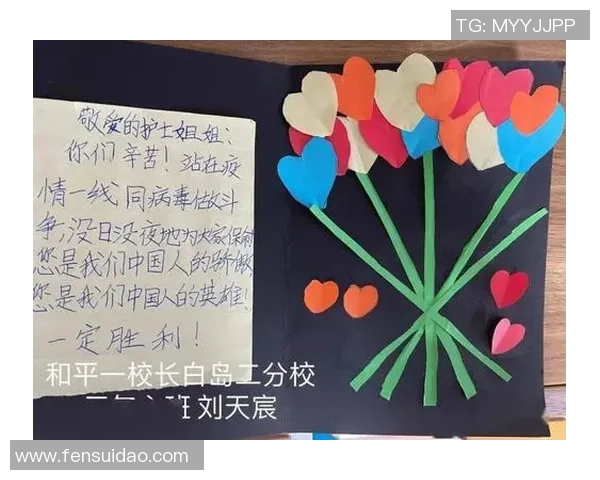 TG: MYYJJPP
敬爱的护士姐姐：
你们辛苦！站在疫
情一线同病毒做斗
争，没日没夜地为大家保命
您是我们中国人的骄傲
您是我们中国人的英雄！
一定胜利！
和平一校长白岛二分校
班 刘天宸
www.fensuidao.com